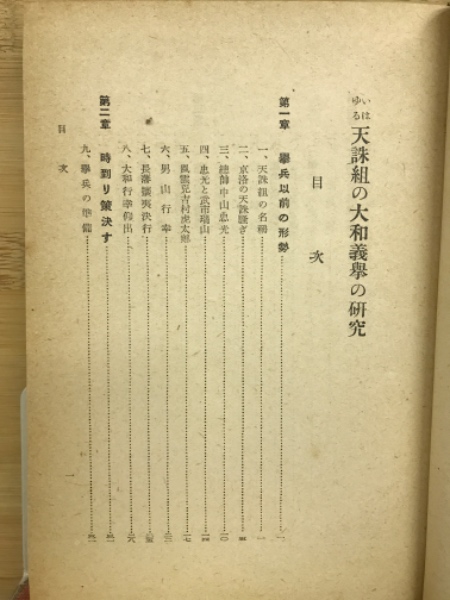 いはゆる天誅組の大和義擧の研究
目次
第一章 擧兵以前の形勢…一
一、天誅組の名稱…一
二、京洛の天誅騒ぎ…五
三、總帥中山忠光…一〇
四、忠光と武市瑞山…一四
五、風雲兒吉村虎太郎…一七
六、男山行幸…二二
七、長藩攘夷決行
八、大和行幸仰出…二八
第二章 時到り策決す
九、擧兵の準備
目次
一